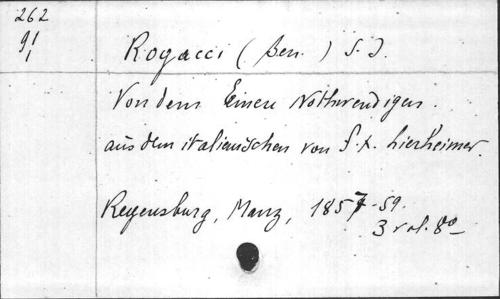 262
91
1
Rogacci (Ben.) S. J.
Von dem Einen Nothwendigen.
aus dem italienischen von F. X. Lierheimer.
Regensburg, Manz, 1857-59.
3 vol. 8°